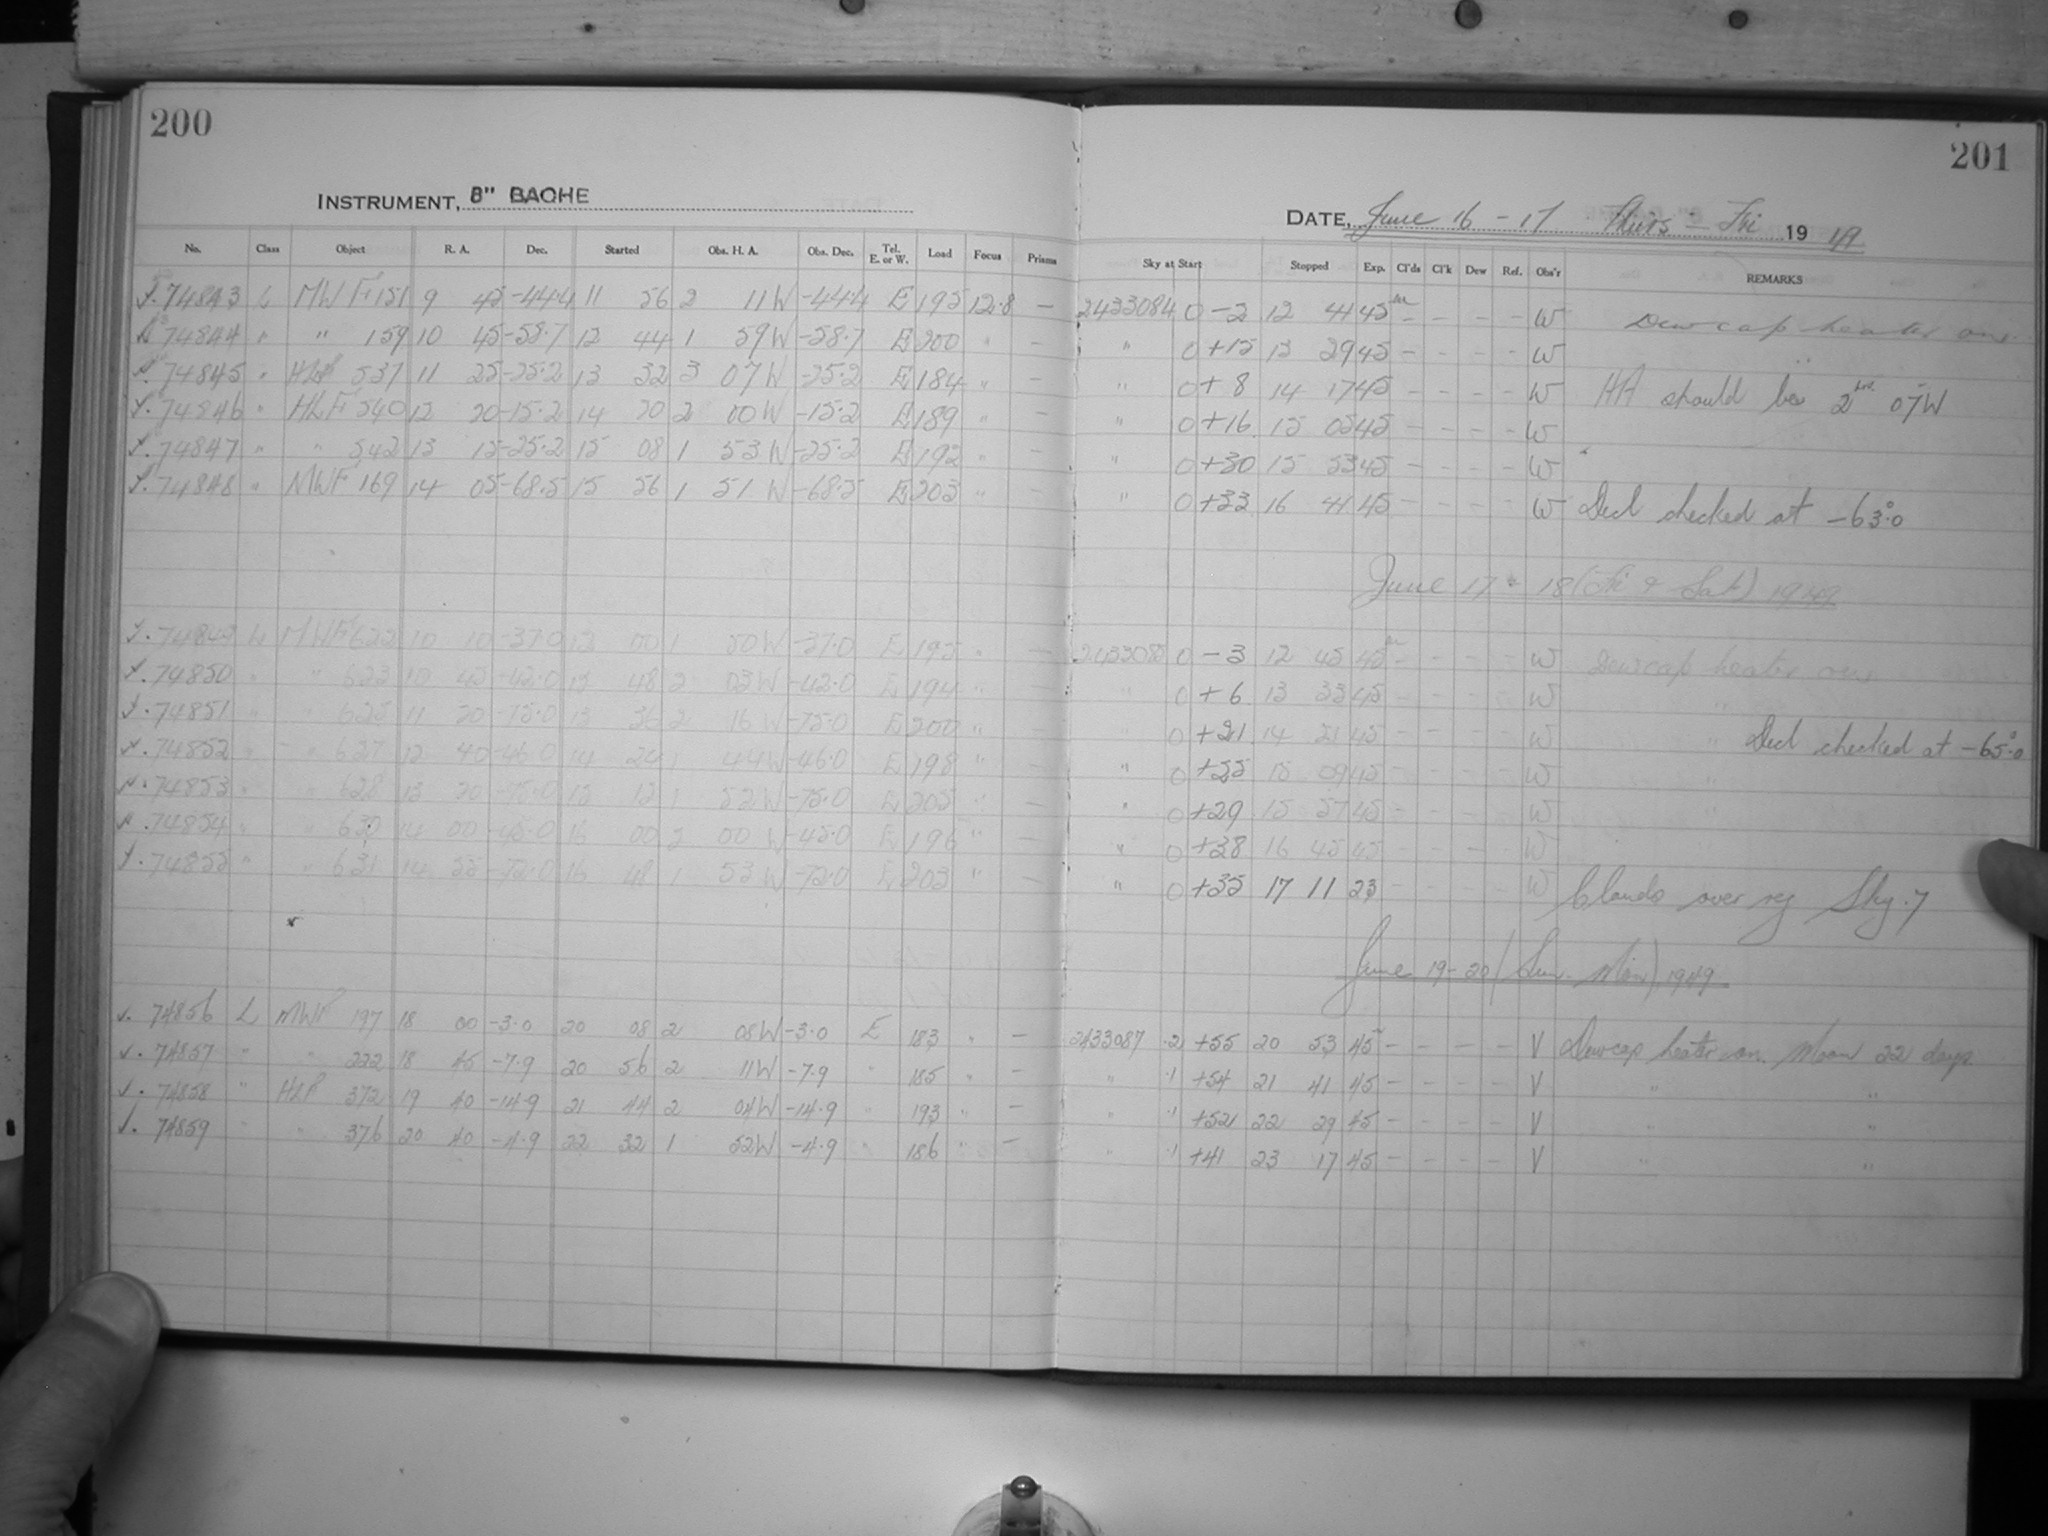 200
INSTRUMENT, 8" BACHE
No. Class Object R. A. Dec. Started Obs. H. A. Obs. Dec. Tel. E. or W. Load Focus Prisms
74843 L MWF 151 9 45 -44.4 11 56 2 11W -44.4 E 195 12.8 —
74844 " " 159 10 45 -58.7 12 44 1 59W -58.7 E 200 " —
74845 " HLF 537 11 25 -25.2 13 32 3 07W -25.2 E 184 " —
74846 " HLF 540 12 20 -15.2 14 20 2 00W -15.2 E 189 " —
74847 " " 542 13 15 -25.2 15 08 1 53W -25.2 E 192 " —
74848 " MWF 169 14 05 -68.5 15 56 1 51 W -68.5 E 203 " —
74849 L MWF 622 10 10 -37.0 12 00 1 50W -37.0 E 195 " —
74850 " " 623 10 45 -42.0 12 48 2 03W -42.0 E 194 " —
74851 " " 625 11 20 -75.0 13 36 2 16W -75.0 E 200 " —
74852 " " 627 12 40 -46.0 14 24 1 44W -46.0 E 198 " —
74853 " " 628 13 20 -75.0 15 12 1 52W -75.0 E 205 " —
74854 " " 630 14 00 -45.0 16 00 2 00 W -45.0 E 196 " —
74855 " " 631 14 55 -72.0 16 48 1 53W -72.0 E 203 " —
74856 L MWF 197 18 00 -3.0 20 08 2 08W -3.0 E 183 " —
74857 " " 222 18 45 -7.9 20 56 2 11W -7.9 " 185 " —
74858 " HLF 372 19 40 -14.9 21 44 2 04W -14.9 " 193 " —
74859 " " 376 20 40 -4.9 22 32 1 52W -4.9 " 186 " —
201
DATE, June 16 - 17 Thurs - Fri 19 49
Sky at Start Stopped Exp. Cl'ds Cl'k Dew Ref. Obs'r REMARKS
2433084 0 -2 12 41 45 - - - - W Dewcap heater on.
" 0 +15 13 29 45 - - - - W "
" 0 +8 14 17 45 - - - - W HA should be 2 hrs. 07W
" 0 +16 15 05 45 - - - - W
" 0 +30 15 53 45 - - - - W
" 0 +33 16 41 45 - - - - W Decl checked at -63°.0
June 17 & 18 (Fri & Sat) 1949
2433085 0 -3 12 45 45 - - - - W Dewcap heater on,
" 0 +6 13 33 45 - - - - W "
" 0 +21 14 21 45 - - - - W " Decl checked at -65°.0
" 0 +25 15 09 45 - - - - W "
" 0 +29 15 57 45 - - - - W "
" 0 +38 16 45 45 - - - - W
" 0 +35 17 11 23 - - - - W Clouds over reg Sky .7
June 19 - 20 (Sun. Mon) 1949
2433087 .2 +55 20 53 45 - - - - V Dewcap heater on. Moon 22 days.
" .1 +54 21 41 45 - - - - V " "
" .1 +52 22 29 45 - - - - V " "
" .1 +41 23 17 45 - - - - V " "